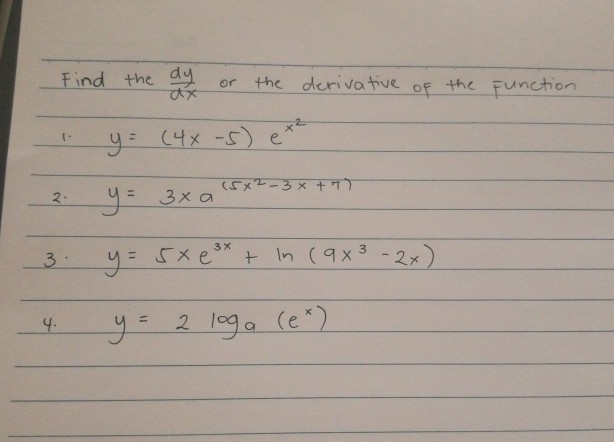 Find the dy/dx or the derivative of the Function
1. y = (4x - 5) e^x²
2. y = 3x a^(5x² - 3x + 7)
3. y = 5x e^3x + ln (9x³ - 2x)
4. y = 2 log a (e^x)